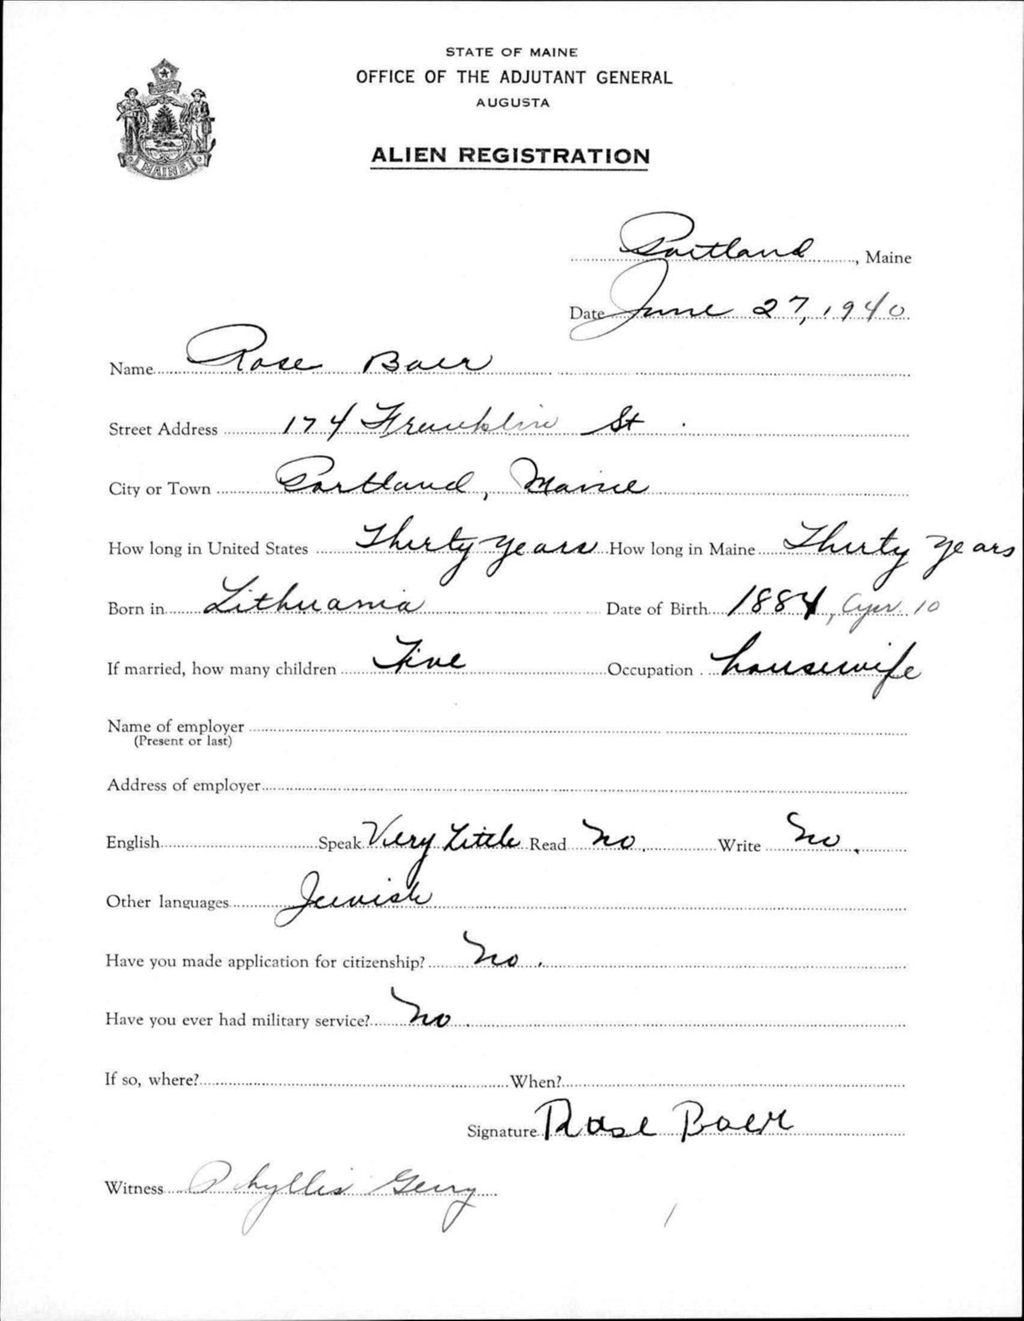 STATE OF MAINE
OFFICE OF THE ADJUTANT GENERAL
AUGUSTA
ALIEN REGISTRATION
MAINE
Portland, Maine
Date June 27, 1940
Name Rose Baer
Street Address 174 Franklin St
City or Town Portland, Maine
How long in United States Thirty years How long in Maine Thirty years
Born in Lithuania Date of Birth 1884, 10
If married, how many children Five Occupation housewife
Name of employer
(Present or last)
Address of employer
English Speak Very Little Read No. Write No.
Other languages Jewish
Have you made application for citizenship? No.
Have you ever had military service? No.
If so, where? When?
Signature Rose Baer
Witness Phyllis Gerry